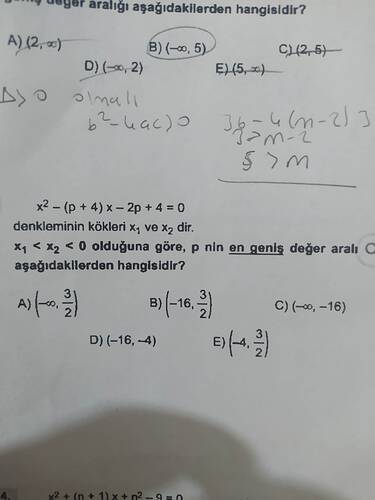 geniş değer aralığı aşağıdakilerden hangisidir?
A) (2, ∞)
B) (-∞, 5)
C) (2, 5)
D) (-∞, 2)
E) (5, ∞)
Δ>0 olmalı
b²-4ac>0
36-4(n-2)
n-2
5>m
x² – (p + 4) x – 2p + 4 = 0
denkleminin kökleri x₁ ve x₂ dir.
x₁ < x₂ < 0 olduğuna göre, p nin en geniş değer aralı
aşağıdakilerden hangisidir?
A) (-∞, 3/2)
B) (-16, 3/2)
C) (-∞, -16)
D) (-16, -4)
E) (-4, 3/2)
4. x² + (n + 1) x + n² – 9 = 0